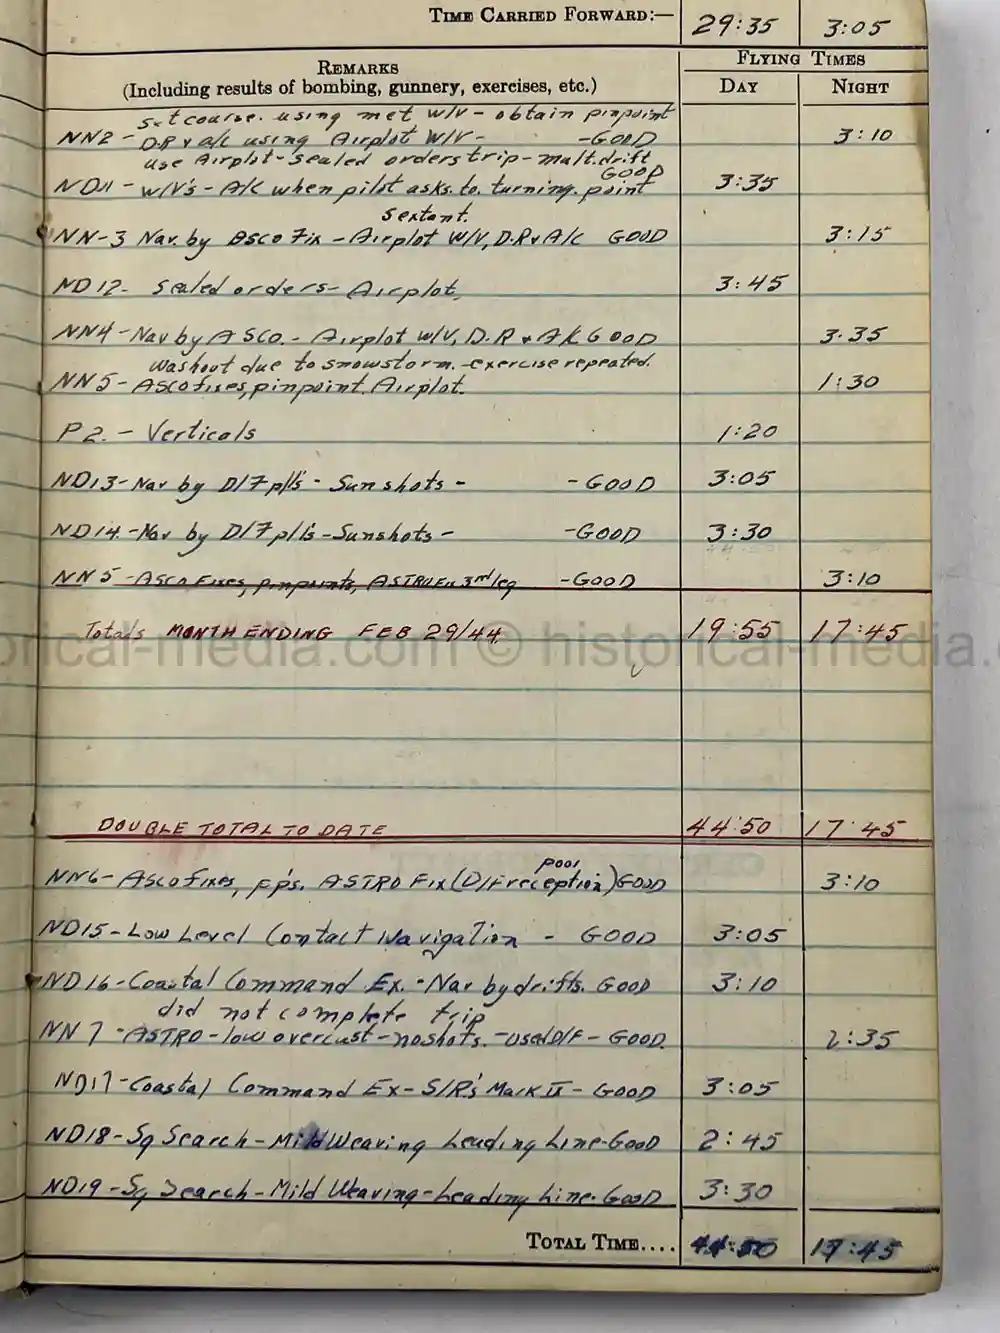 TIME CARRIED FORWARD:— 29:35 3:05
REMARKS FLYING TIMES
(Including results of bombing, gunnery, exercises, etc.) DAY NIGHT
set course. using met w/v - obtain pinpoint
NN2 - D.R v a/c using Airplot W/V - - GOOD 3:10
use Airplot - sealed orders trip - mult. drift
GOOD
ND11 - w/v's - A/C when pilot asks. to. turning. point 3:35
sextant.
NN-3 Nav. by ASCO Fix - Airplot W/V, D.R v A/C GOOD 3:15
ND12- Sealed orders - Airplot. 3:45
NN4 - Nav by ASCO. - Airplot w/v, D.R v A/C GOOD 3.35
Washout due to snowstorm. - exercise repeated.
NN5 - ASCO fixes, pinpoint. Airplot. 1:30
P2. - Verticals 1:20
ND13 - Nav by D/F p/l's - Sunshots - - GOOD 3:05
ND14. - Nav by D/F p/l's - Sunshots - - GOOD 3:30
NN5 - ASCO Fixes, pinpoints, ASTRO Fix 3rd leg - GOOD 3:10
Totals MONTH ENDING FEB 29/44 19:55 17:45
historical-media.com © historical-media.
DOUBLE TOTAL TO DATE 44:50 17:45
poor
NN6 - ASCO fixes, p.p's. ASTRO Fix (D/F reception) GOOD 3:10
ND15 - Low Level Contact Navigation - GOOD 3:05
ND16 - Coastal Command Ex. - Nav by drifts. GOOD 3:10
did not complete trip
NN7 - ASTRO - low overcast - no shots. - used D/F - GOOD. 2:35
ND17 - Coastal Command Ex - S/R's Mark II - GOOD 3:05
ND18 - Sq Search - Mild Weaving Leading Line - GOOD 2:45
ND19 - Sq Search - Mild Weaving - Leading Line. GOOD 3:30
TOTAL TIME.... 44:50 17:45